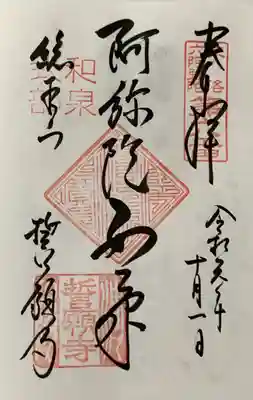 奉拝
令和元年
十月一日
阿弥陀如来
和泉
式部
総本山
誓願寺
誓願寺